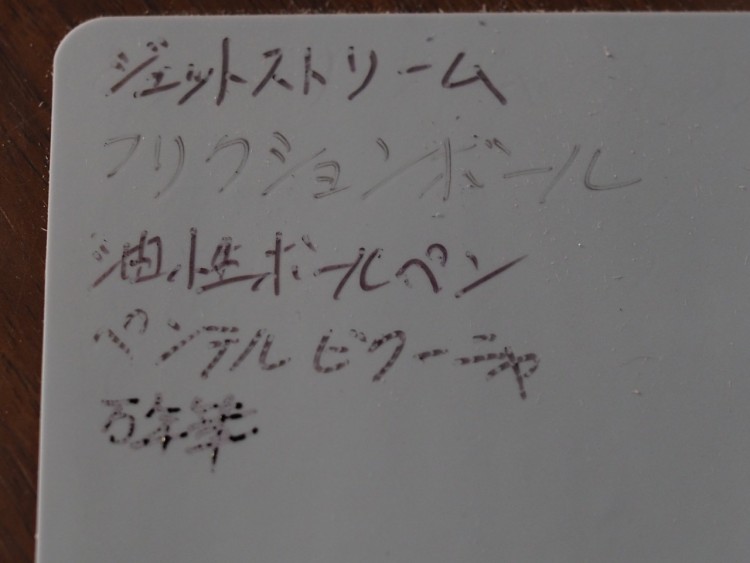 ジェットストリーム
フリクションボール
油性ボールペン
ペンテルビクーニャ
万年筆